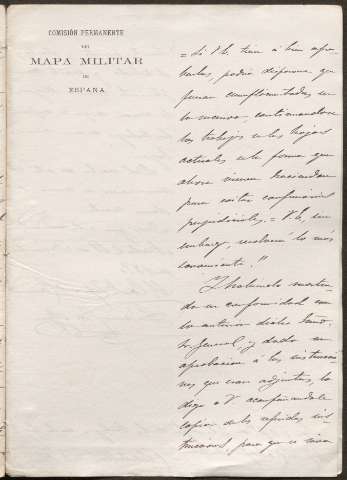 COMISIÓN PERMANENTE
DEL
MAPA MILITAR
DE
ESPAÑA
= Si V.E. tiene á bien apro-
barlas, podrá disponer que
sean cumplimentadas en
lo sucesivo, continuandose
los trabajos en las hojas
actuales en la forma que
ahora vienen haciendose
para evitar confusiones
perjudiciales, = V.E., sin
embargo, resolverá lo más
conveniente."
Y habiendo
do en conformidad con
lo anterior dicho Señ.
or General, y dado su
aprobacion á las instruccio-
nes que eran adjuntas, lo
digo a V. acompañandole
copia de las referidas ins-
trucciones, para que